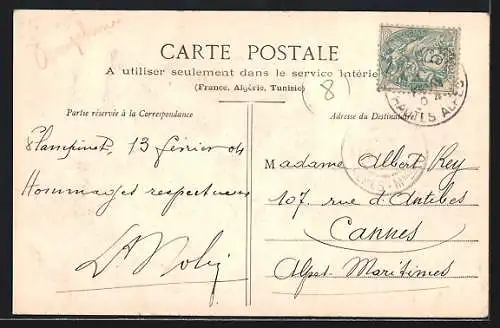 CARTE POSTALE
A utiliser seulement dans le service intérie
(France, Algérie, Tunisie)
(8)
Partie réservée à la Correspondance
Adresse du Destinataire
Plampinet, 13 février 04
Hommages respectueux
Madame Albert Rey
107, rue d'Antibes
Cannes
Alpes-Maritimes
HAUTES ALPES